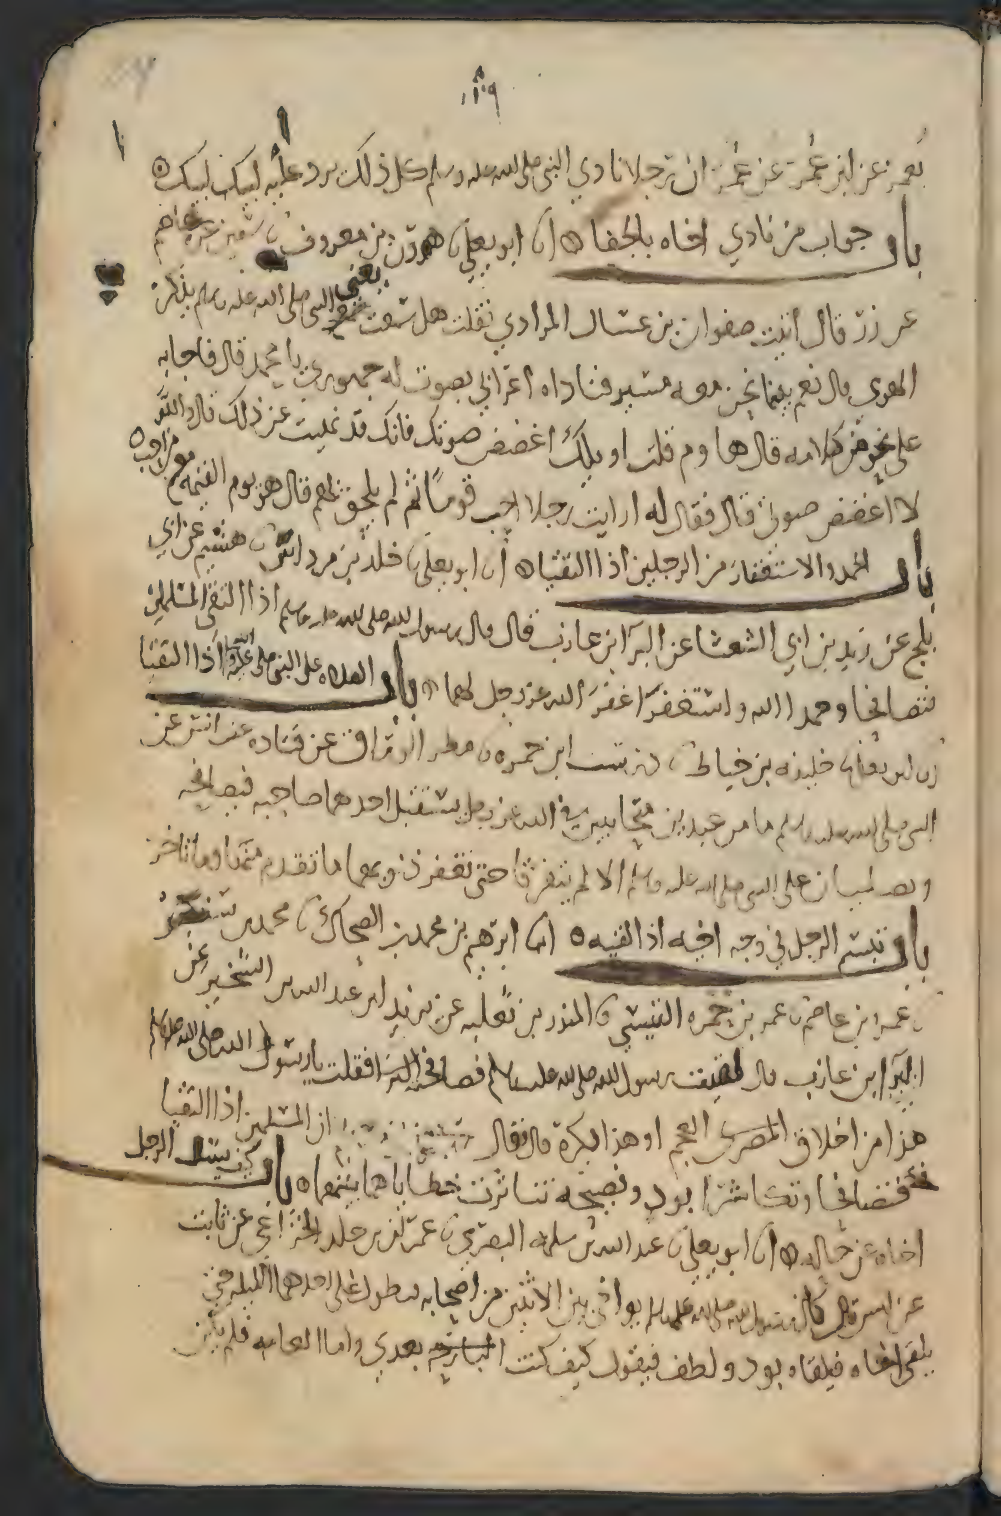 نعمر عن ابن عمر عن عمر ان رجلا نادي النبي صلى الله عليه وسلم كل ذلك يرد عليه لبيك لبيك
باب جواب من نادي اخاه بالجفا ابو يعلي هرون بن معروف سفين عاصم
عن زر قال اتيت صفوان بن عسال المرادي فقلت هل سمعت يعني النبي صلى الله عليه وسلم يذكر
الهوى قال نعم بينما نحن معه مسير فناداه اعرابي بصوت له جمهوري يا محمد قال فاجابه
على نحو من كلامه قال هاوم قلت او ويلك اغضض صوتك فانك قد نهيت عن ذلك قال والله
لا اغضض صوتي قال فقال له ارايت رجلا احب قوما ثم لم يلحق بهم قال هو يوم القيمه مع من احب
باب الحمد والاستغفار من الرجلين اذا التقيا ابو يعلى خلد بن مرداس هشيم عن ابي
بلج عن زيد بن ابي الشعثا عن البرا بن عازب قال قال رسول الله صلى الله عليه وسلم اذا التقى المسلمين
فتصافحا وحمدا الله واستغفرا غفر الله عز وجل لهما باب الصلاه على النبي صلى الله عليه اذا التقيا
ابو يعلى خليفه بن خياط درست ابن حمزه مطر الوراق عن قتاده عن انس عن
النبي صلى الله عليه وسلم ما من عبدين متحابين في الله عز وجل يستقبل احدهما صاحبه فيصافحه
ويصليان على النبي صلى الله عليه وسلم الا لم يتفرقا حتى تغفر ذنوبهما ما تقدم منها وما تاخر
باب تبسم الرجل في وجه اخيه اذا لقيه ابرهيم بن محمد بن الضحاك محمد بن
عمرو بن عاصم عمر بن حمزه القيسي المنذر بن ثعلبه عن يزيد ابن عبد الله بن الشخير عن
البرا بن عازب قال لقيت رسول الله صلى الله عليه وسلم فصافحني البرا فقلت يا رسول الله صلى الله عليه وسلم
هذا من اخلاق العجم او هذا يكره قال فقال ان المسلمين اذا التقيا
فتصافحا وتكاشرا بود ونصيحه تناثرت خطاياهما بينهما باب كيف يسال الرجل
اخاه عن حاله ابو يعلي عبد الله بن سلمه البصري عمر بن خلد الخزاعي عن ثابت
عن انس قال كان رسول الله صلى الله عليه وسلم يواخي بين الاثنين من اصحابه فيطول على احدهما الليله حتي
يلقى اخاه فيلقاه بود ولطف فيقول كيف كنت بعدي واما العامه فلم يكن